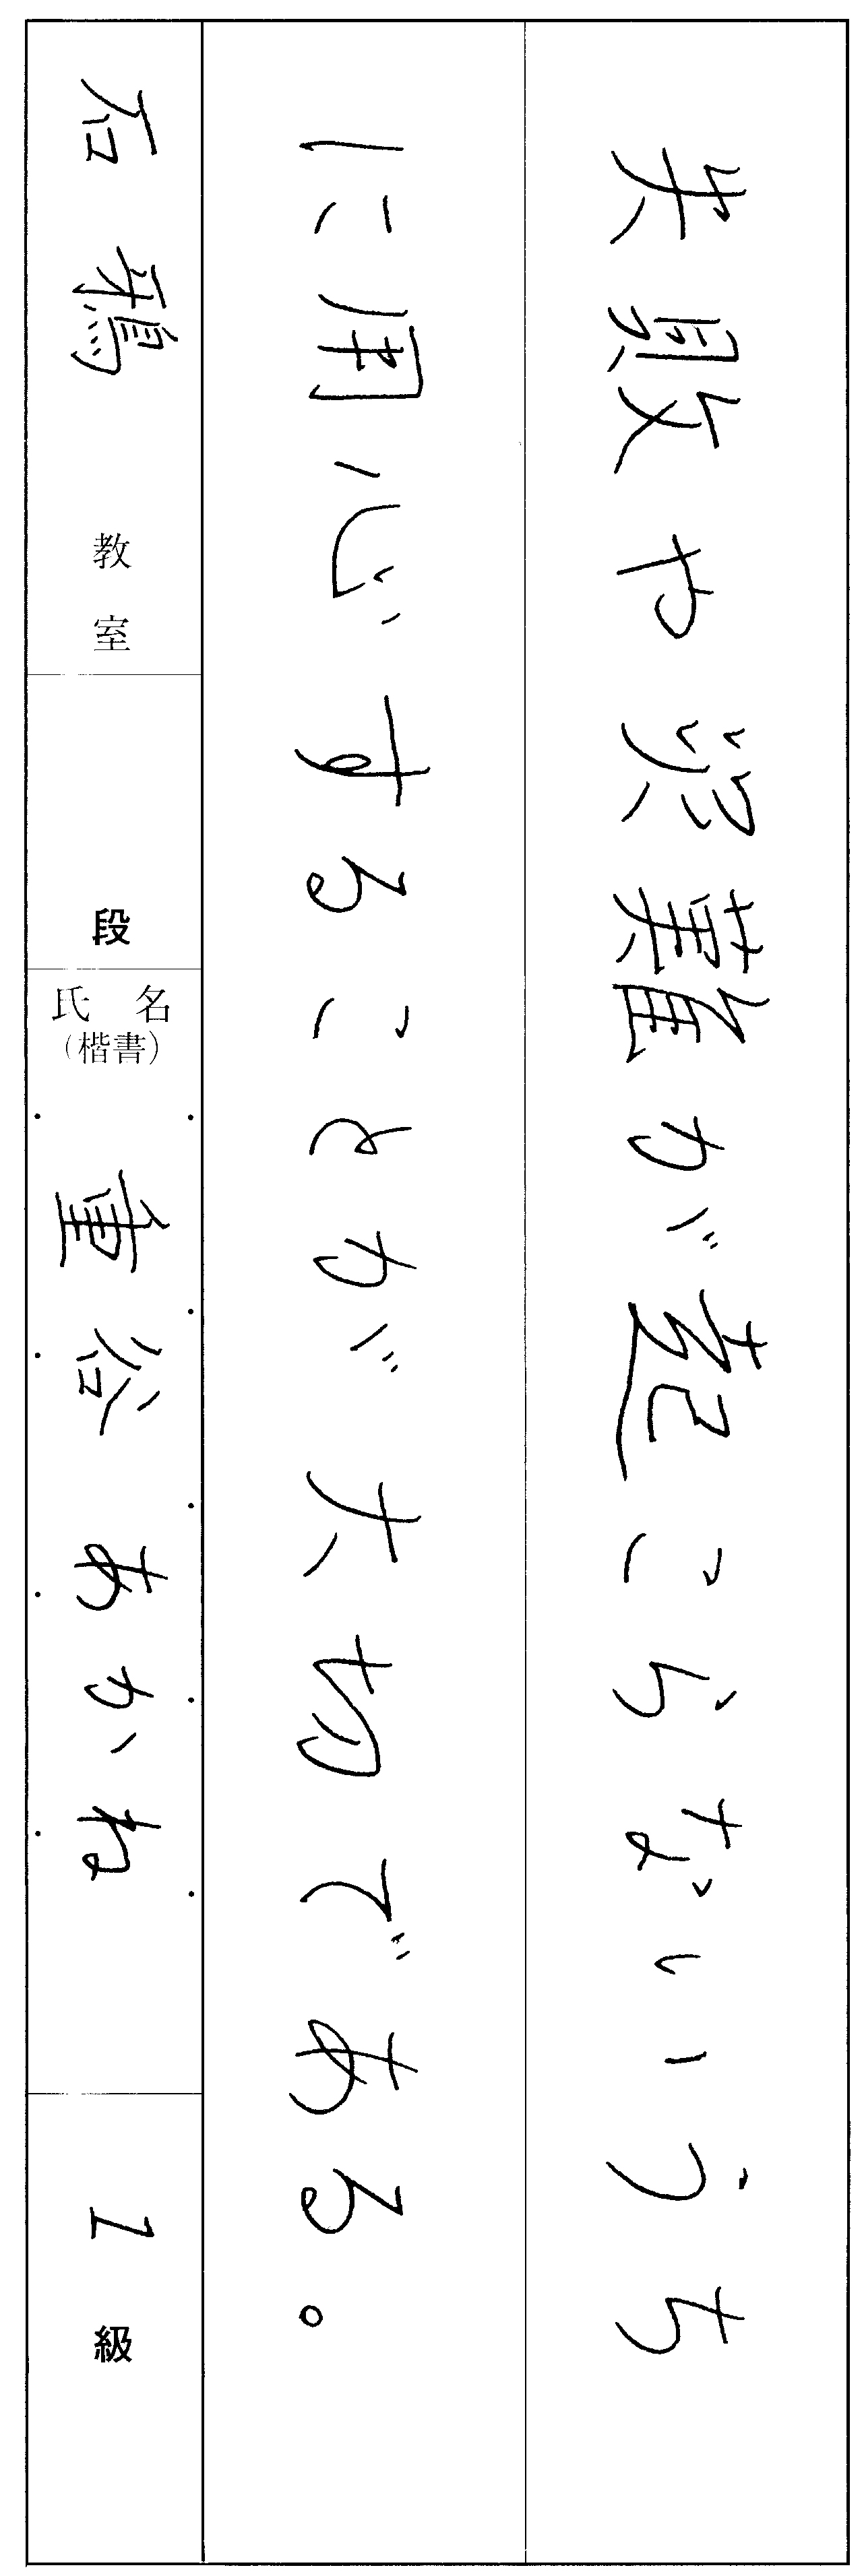 失敗や災難が起こらないうち
に用心することが大切である。
石鴉 教室
段
氏名
(楷書)
重谷 あかね
1級